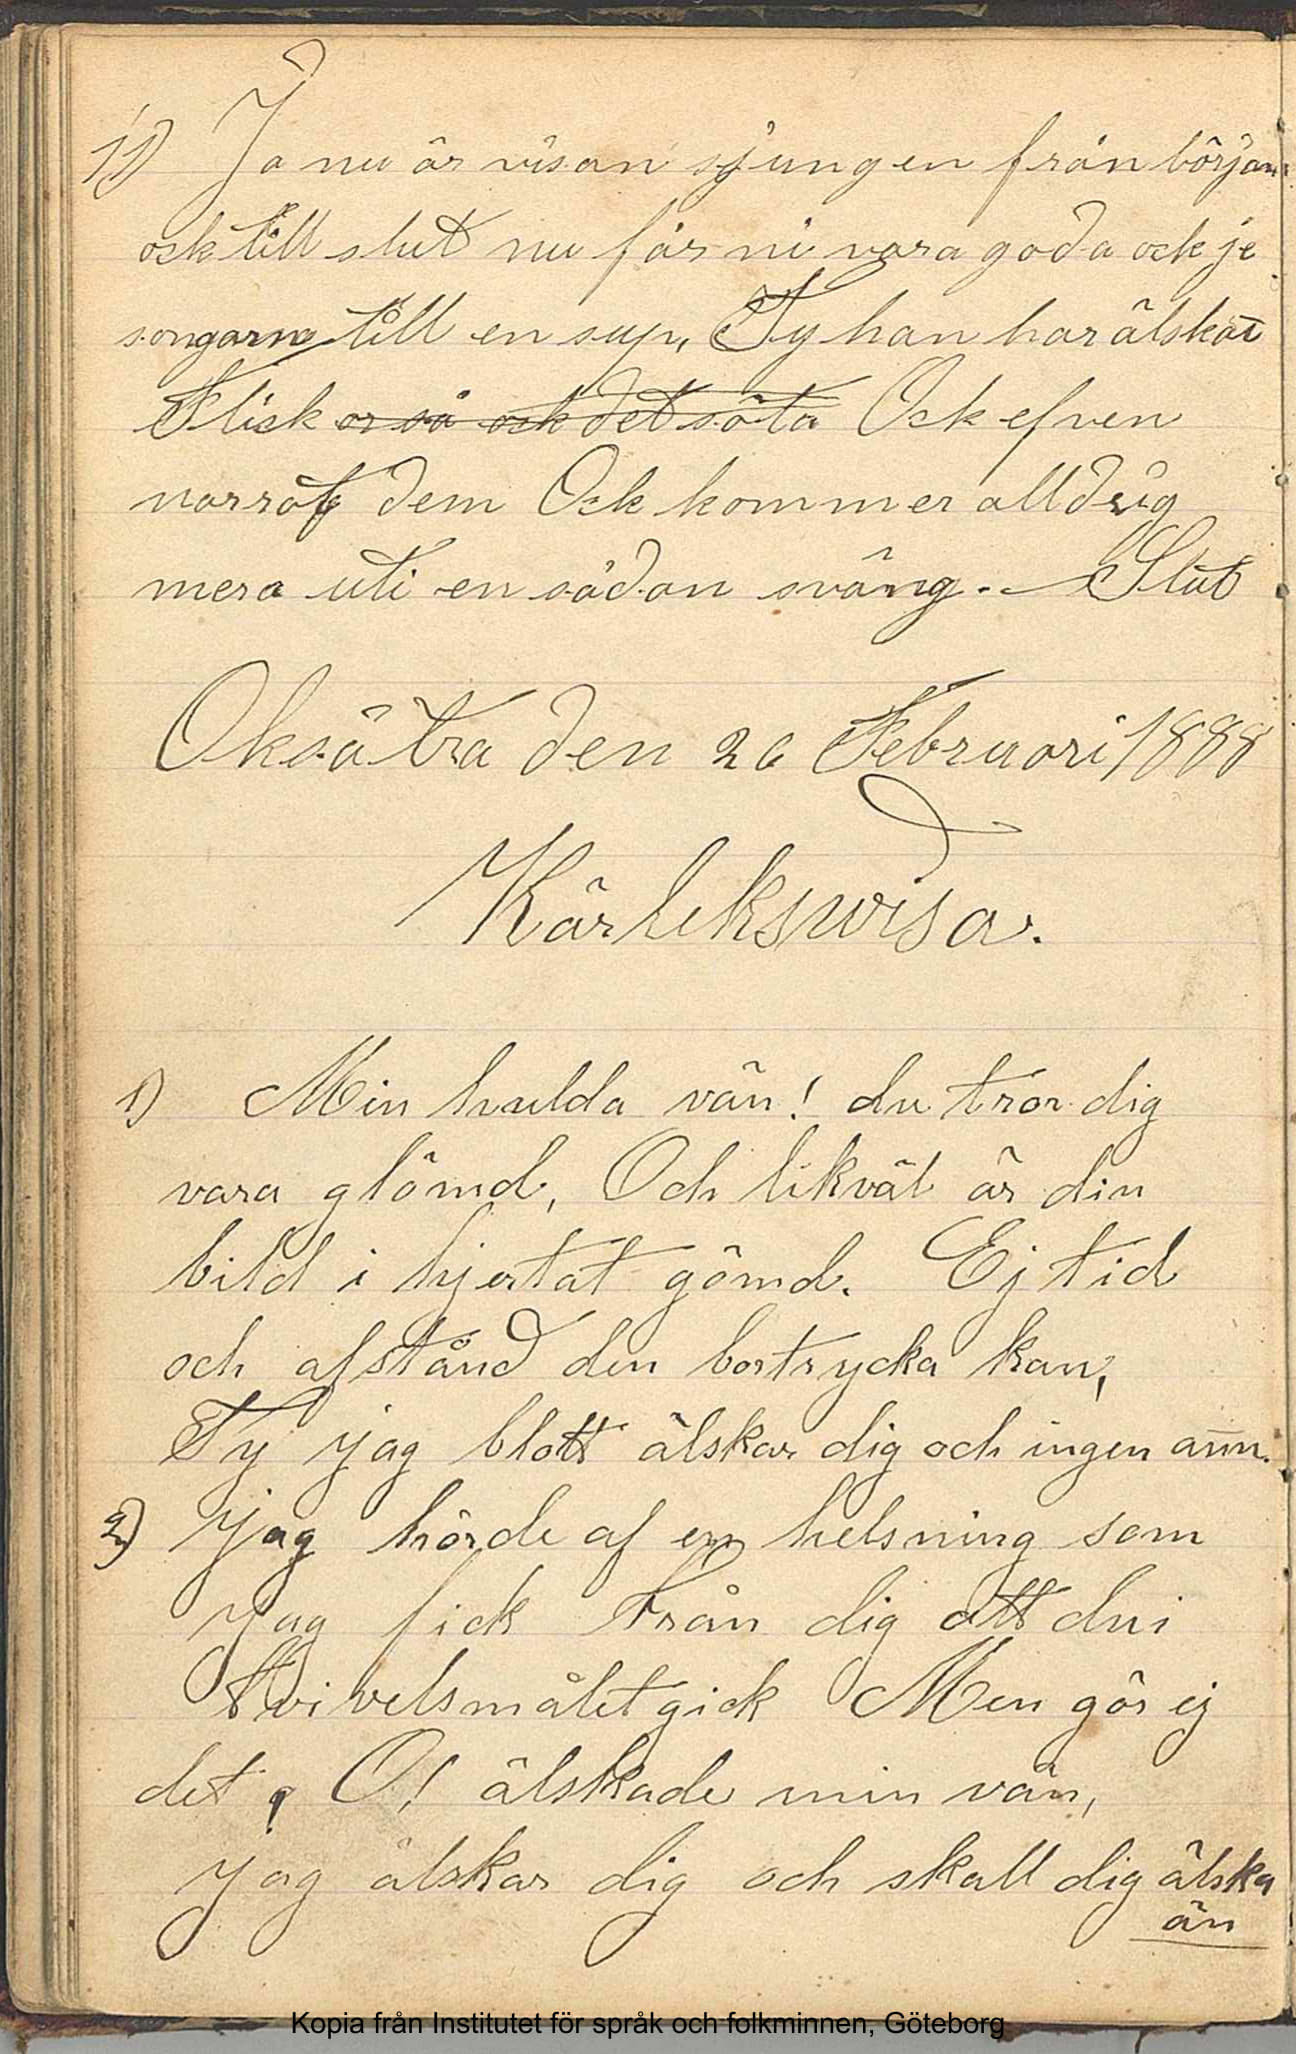 11) Ja nu är visan sjungen från början
ock till slut nu får ni vara goda ock je
songarna till en sup, Ty han har älskat
Flick or så ock det söta Ock efven
narrat dem Ock kommer alldrig
mera uti en sådan sväng. Slut
Oksätra den 26 Februari 1888
Kärleksvisa.
1) Min hulda vän! du tror dig
vara glömd, Och likväl är din
bild i hjertat gömd. Ej tid
och afstånd den bortrycka kan,
Ty jag blott älskar dig och ingen ann.
2) Jag hörde af en helsning som
jag fick Från dig att du i
tvivelsmålet gick Men gör ej
det, O! älskade min vän,
Jag älskar dig och skall dig älska
än
Kopia från Institutet för språk och folkminnen, Göteborg